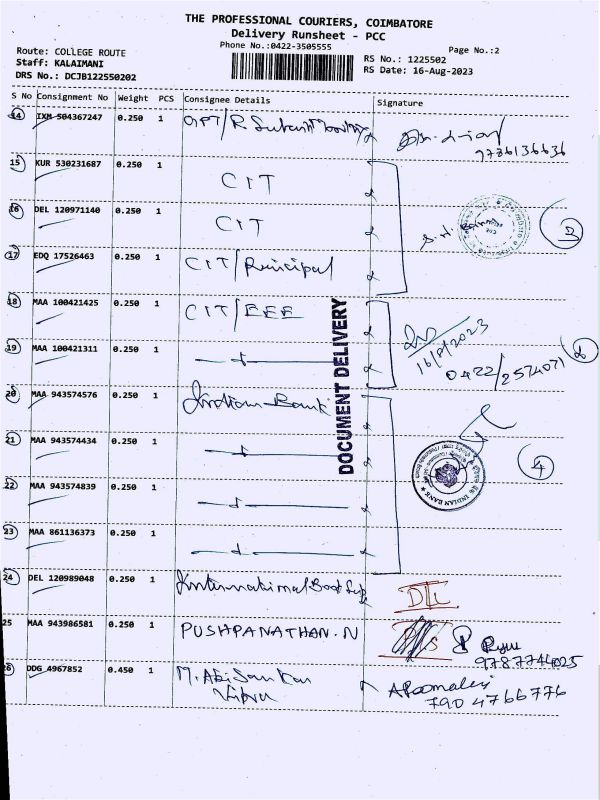 THE PROFESSIONAL COURIERS, COIMBATORE
Delivery Runsheet - PCC
Phone No.:0422-3505555
Page No.:2
Route: COLLEGE ROUTE
Staff: KALAIMANI
DRS No.: DCJB122550202
RS No.: 1225502
RS Date: 16-Aug-2023
S No Consignment No Weight PCS Consignee Details Signature
14 IXM 504367247 0.250 1 9786136636
15 KUR 530231687 0.250 1 CIT
16 DEL 120971140 0.250 1 CIT
17 EDQ 17526463 0.250 1 CIT/
3
18 MAA 100421425 0.250 1 CIT/EEE
16/8/2023
19 MAA 100421311 0.250 1 0422/2574071
DOCUMENT DELIVERY
20 MAA 943574576 0.250 1 Indian Bank
21 MAA 943574434 0.250 1
INDIAN BANK
4
22 MAA 943574839 0.250 1
23 MAA 861136373 0.250 1
24 DEL 120989048 0.250 1 International DL
25 MAA 943986581 0.250 1 PUSHPANATHAN.N
9787744025
26 DDG 4967852 0.450 1
790 4766776